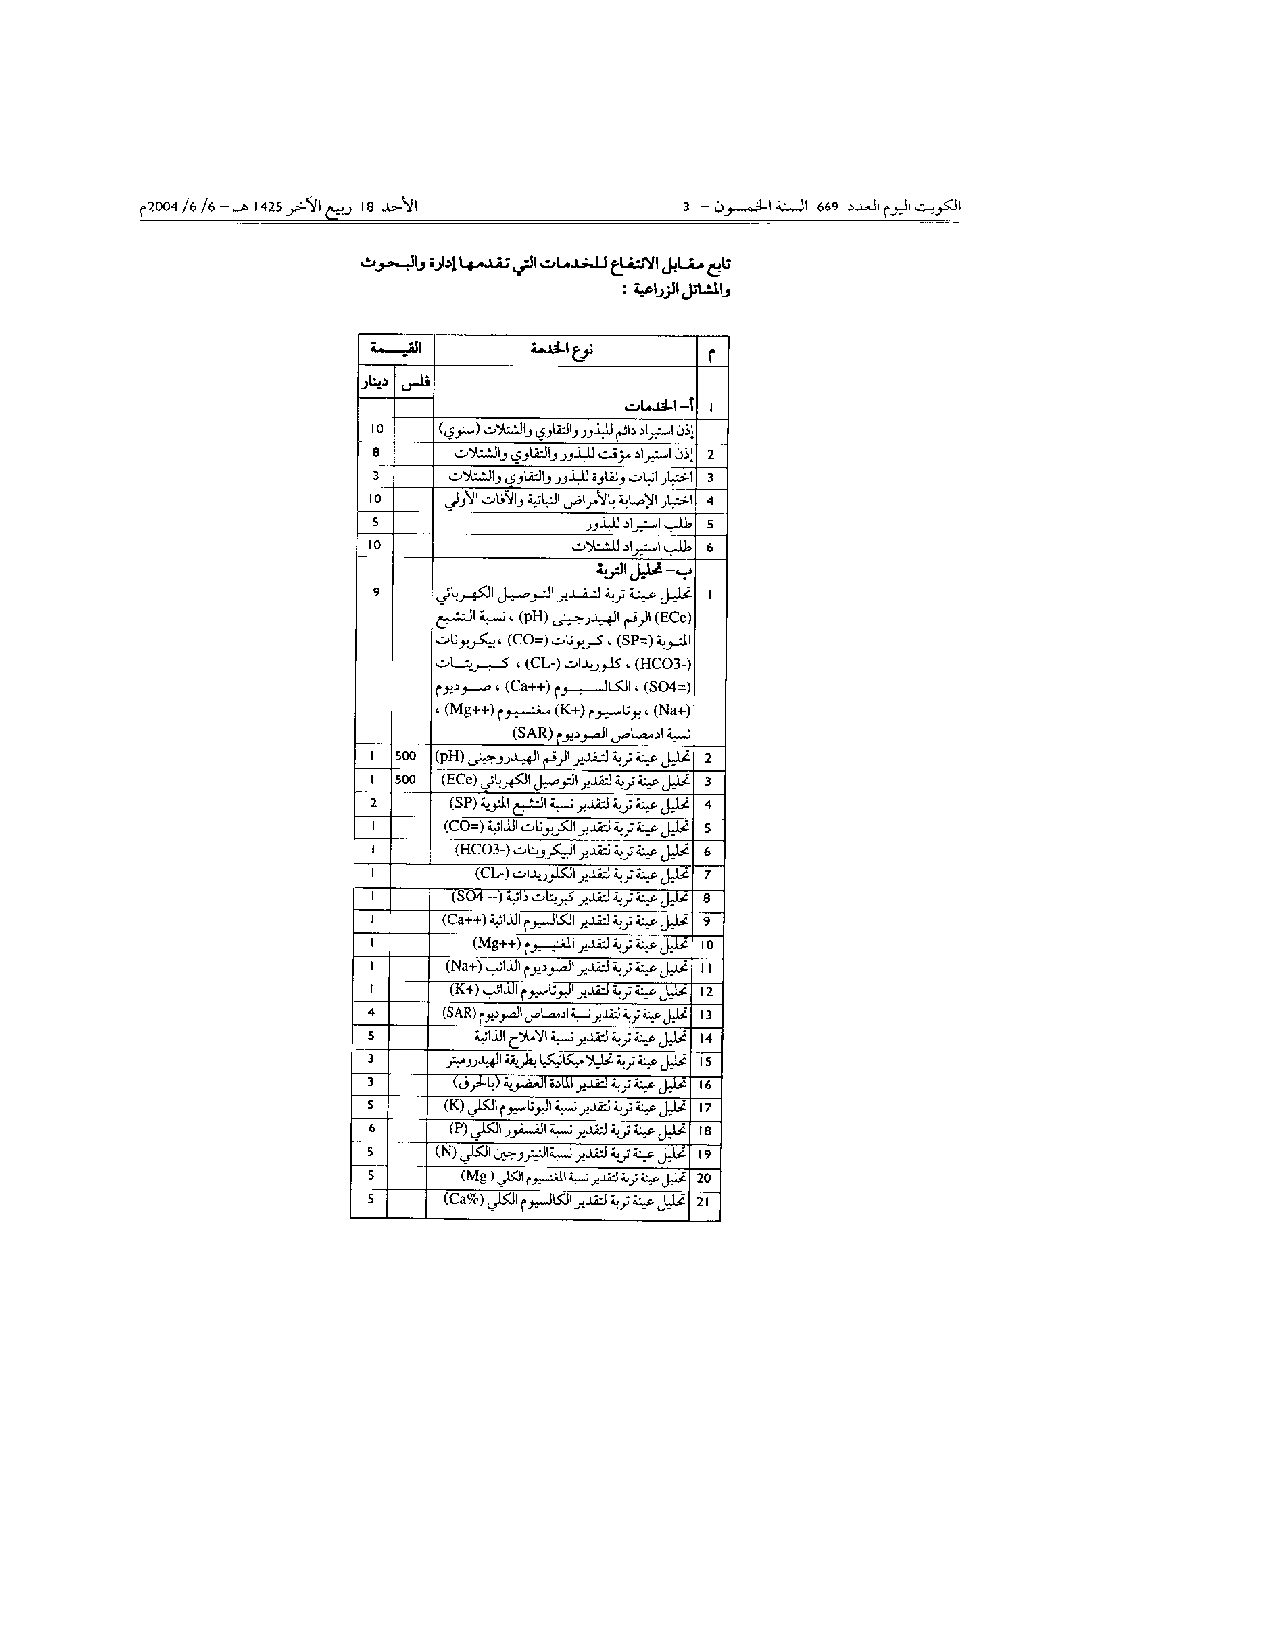 الكويت اليوم العدد 669 السنة الخمسون - 3
الأحد 18 ربيع الآخر 1425 هـ - 6 /6 /2004م
تابع مقابل الانتفاع للخدمات التي تقدمها إدارة والبحوث
والمشاتل الزراعية :
م نوع الخدمة القيمة
فلس دينار
1 أ- الخدمات
إذن استيراد دائم للبذور والتقاوي والشتلات (سنوي) 10
2 إذن استيراد مؤقت للبذور والتقاوي والشتلات 8
3 اختبار انبات ونقاوة للبذور والتقاوي والشتلات 3
4 اختبار الإصابة بالأمراض النباتية والآفات الأولي 10
5 طلب استيراد للبذور 5
6 طلب استيراد للشتلات 10
ب- تحليل التربة
1 تحليل عينة تربة لتقدير التوصيل الكهربائي 9
(ECe) الرقم الهيدرجيني (pH) ، نسبة التشبع
المئوية (SP=) ، كربونات (CO=) ، بيكربونات
(HCO3-) ، كلوريدات (CL-) ، كبريتات
(SO4=) ، الكالسيوم (Ca++) ، صوديوم
(Na+) ، بوتاسيوم (K+) مغنسيوم (Mg++) ،
نسبة ادمصاص الصوديوم (SAR)
2 تحليل عينة تربة لتقدير الرقم الهيدروجيني (pH) 500 1
3 تحليل عينة تربة لتقدير التوصيل الكهربائي (ECe) 500 1
4 تحليل عينة تربة لتقدير نسبة التشبع المئوية (SP) 2
5 تحليل عينة تربة لتقدير الكربونات الذائبة (CO=) 1
6 تحليل عينة تربة لتقدير البيكرونات (HCO3-) 1
7 تحليل عينة تربة لتقدير الكلوريدات (CL-) 1
8 تحليل عينة تربة لتقدير كبريتات ذائبة (SO4 --) 1
9 تحليل عينة تربة لتقدير الكالسيوم الذائبة (Ca++) 1
10 تحليل عينة تربة لتقدير المغنسيوم (Mg++) 1
11 تحليل عينة تربة لتقدير الصوديوم الذائب (Na+) 1
12 تحليل عينة تربة لتقدير البوتاسيوم الذائب (K+) 1
13 تحليل عينة تربة لتقدير نسبة ادمصاص الصوديوم (SAR) 4
14 تحليل عينة تربة لتقدير نسبة الاملاح الذائبة 5
15 تحليل عينة تربة تحليلا ميكانيكيا بطريقة الهيدروميتر 3
16 تحليل عينة تربة لتقدير المادة العضوية (بالحرق) 3
17 تحليل عينة تربة لتقدير نسبة البوتاسيوم الكلي (K) 5
18 تحليل عينة تربة لتقدير نسبة الفسفور الكلي (P) 6
19 تحليل عينة تربة لتقدير نسبة النيتروجين الكلي (N) 5
20 تحليل عينة تربة لتقدير نسبة المغنسيوم الكلي (Mg) 5
21 تحليل عينة تربة لتقدير الكالسيوم الكلي (Ca%) 5